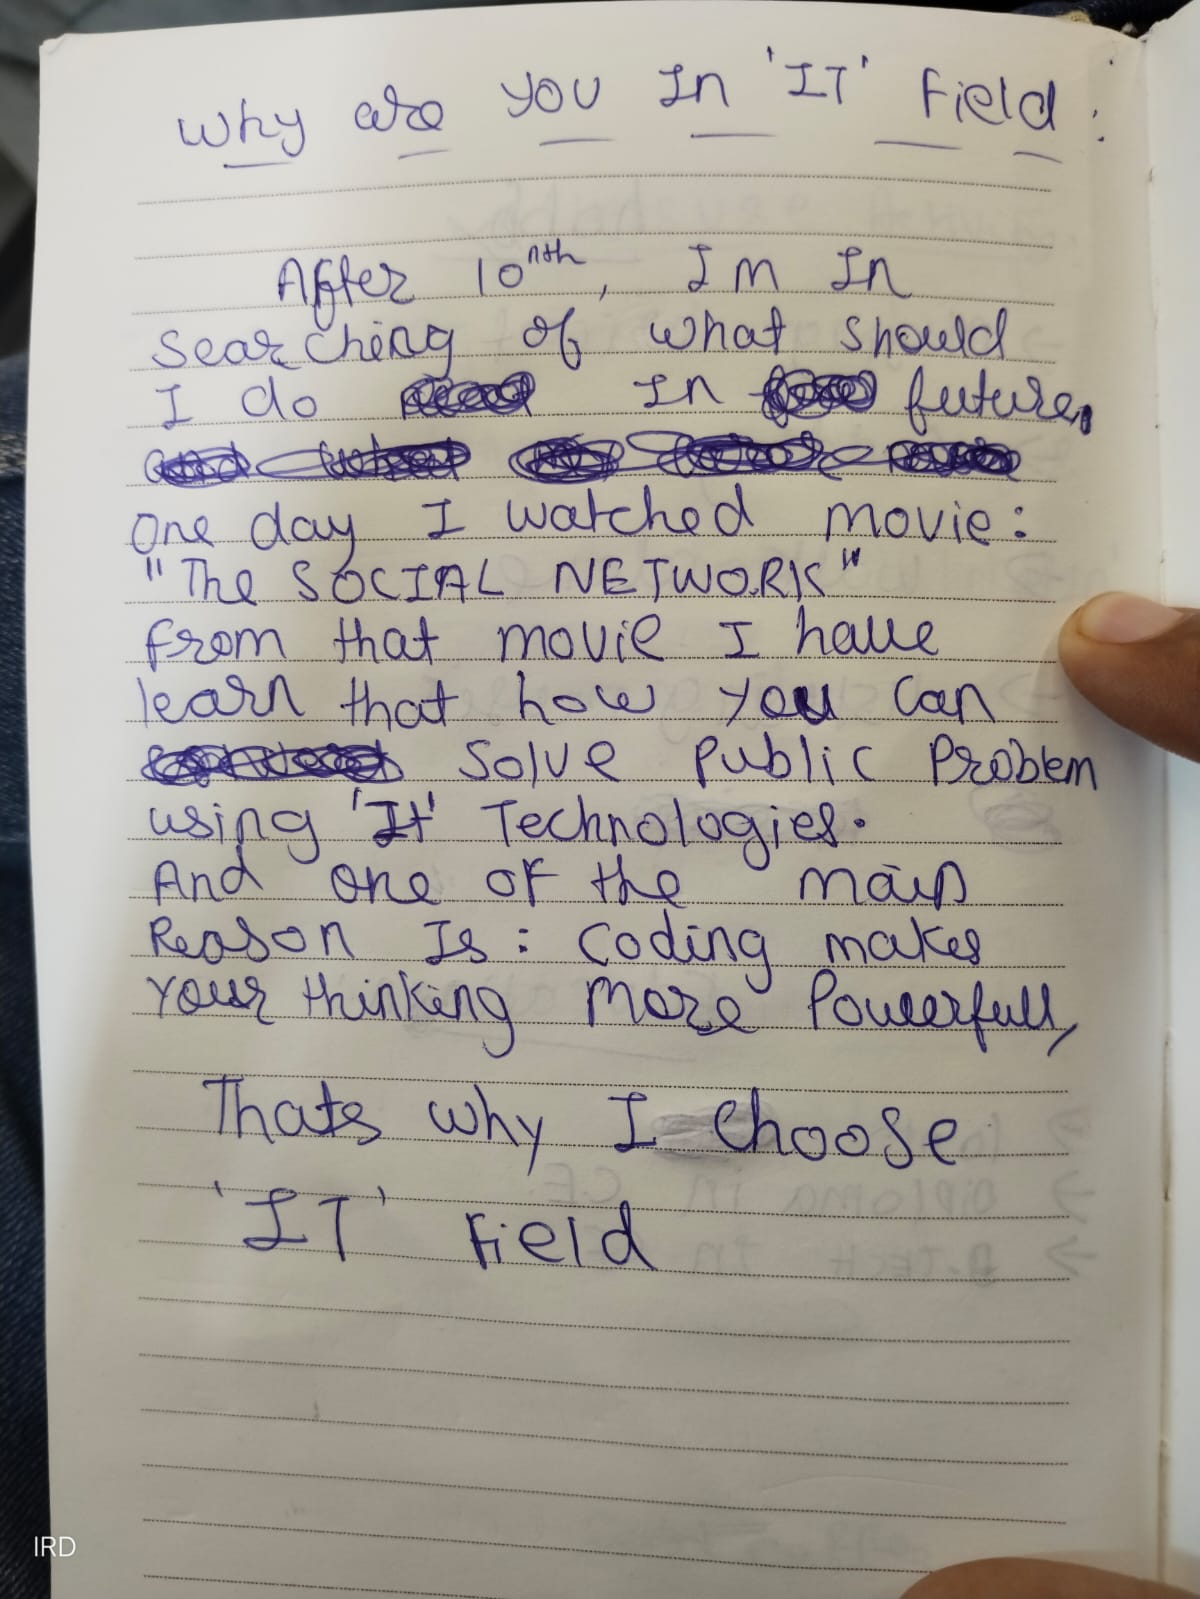 Why are you In 'IT' Field :
After 10nth, Im In
Searching of what should
I do In future,
One day I watched movie:
"The SOCIAL NETWORK"
From that movie I have
learn that how you can
Solve Public Problem
using 'It' Technologies.
And one of the main
Reason Is: Coding makes
Your thinking More Powerfull,
Thats why I Choose
'IT' Field
IRD